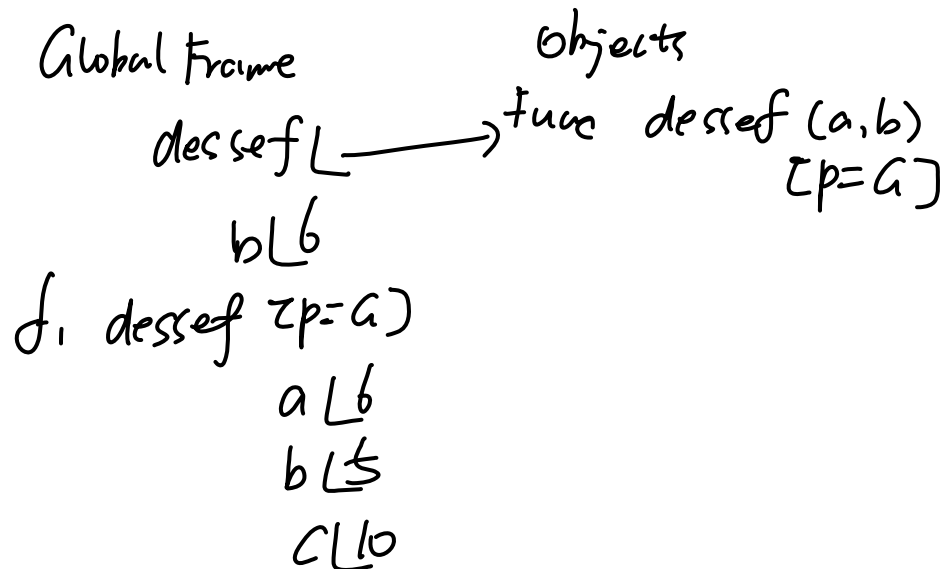 Global Frame
Objects
dessef
func dessef (a,b)
[p=G]
b 6
f1 dessef [p=G]
a 6
b 5
c 10